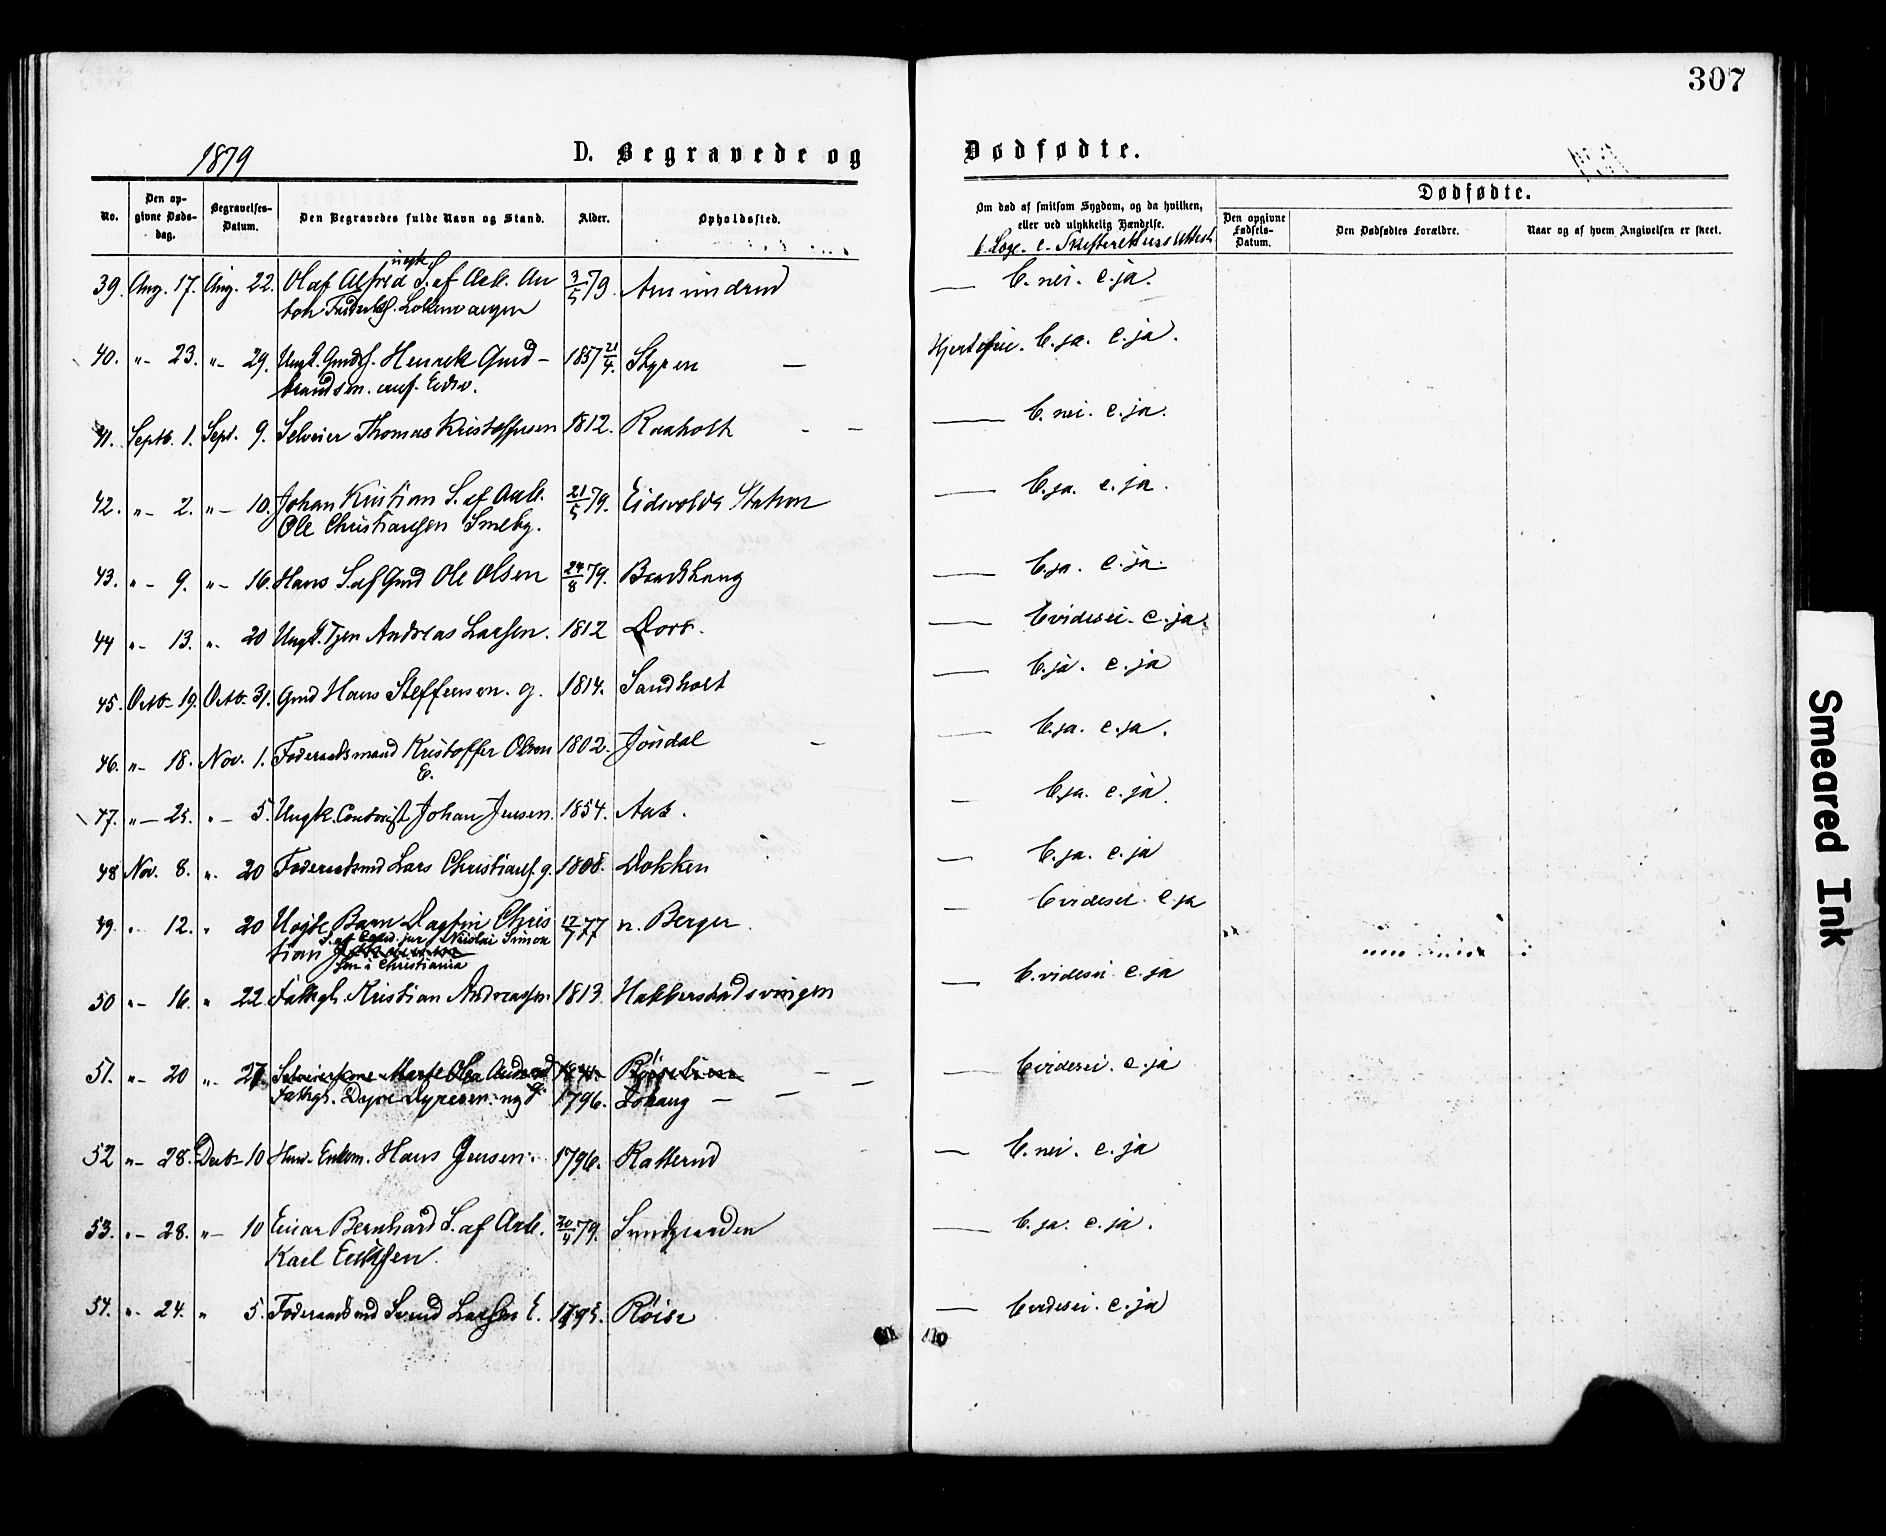 307
1879
D. Begravede og
Dødfødte.
Dødfødte.
No.
Den opgivne Dødsdag.
Begravelses-Datum.
Den Begravedes fulde Navn og Stand.
Alder.
Opholdssted.
Om død af smitsom Sygdom, og da hvilken,
eller ved ulykkelig Hændelse.
b. Læge- c. Skifterettens Attest
Den opgivne Fødsels-Datum.
Den Dødfødtes Forældre.
Naar og af hvem Angivelsen er skeet.
39. Aug. 17. Aug. 22. Olaf Alfred S. af Arb. An 3/5 79. Amundrud — b. nei. c. ja.
ton Fredriks.
40. "- 23. "- 29. Ungk. Gmds. Henrik Gud- 1857 21/4. Styren — b. ja. c. ja.
brandsen. Eidsv.
41. Septb. 1. Sept. 9. Selveier Thomas Kristoffersen 1812. Raaholt — b. nei. c. ja.
42. "- 2. "- 10. Johan Kristian S. af Arb. 21/5 79. Eidsvolds Station — b. ja. c. ja.
Ole Christiansen Smeby.
43. "- 9. "- 16. Hans S. af Gmd Ole Olsen 24/8 79. — b. ja. c. ja.
44 "- 13. "- 20 Ungk. Tjen Andreas Larsen. 1812 Dorr. — b vides ei. c. ja.
45. Octb- 19. Octb- 31. Gmd Hans Steffensen. g. 1814. Sandholt — b. ja. c. ja
46. "- 18. Nov. 1. Føderaadsmand Kristoffer Olsen 1802. Jøndal — b. ja. c. ja.
E.
47. "- 25. "- 5. Ungk. Contorist Johan Jensen. 1854. Aas. — b. ja. c. ja.
48 Nov. 8. ". 20 Føderaadsmd Lars Christians. g. 1808. Dokken — b. ja. c. ja
49. " 12. " 20 Barn Dagfin Chris 12/7 77 n. Berger. — b vides ei. c. ja
tian S. af Cand. jur. Nicolai Simon
sen i Christiania
50 "- 16. " 22. Fattigl. Kristian Andreassen. 1813. Habberstadsvingen — b. vides ei. c. ja
51. "- 20 "- 27. Selveierkone Marte Olea — b vides ei. c. ja
Fattigl. Dyre Dyresen. 1796.
52 "- 28. Decb- 10 Enkem. Hans Jensen. 1796. Katterud — b. nei. c. ja
53. "- 28. "- 10 Einar Bernhard S. af Arb. 20/4 79. Sundgaarden — b. ja. c. ja.
Karl Eriksen.
54. "- 24. " 5. Føderaadsmd Svend Larsen E. 1795. Røise — b vides ei. c. ja
Smeared Ink